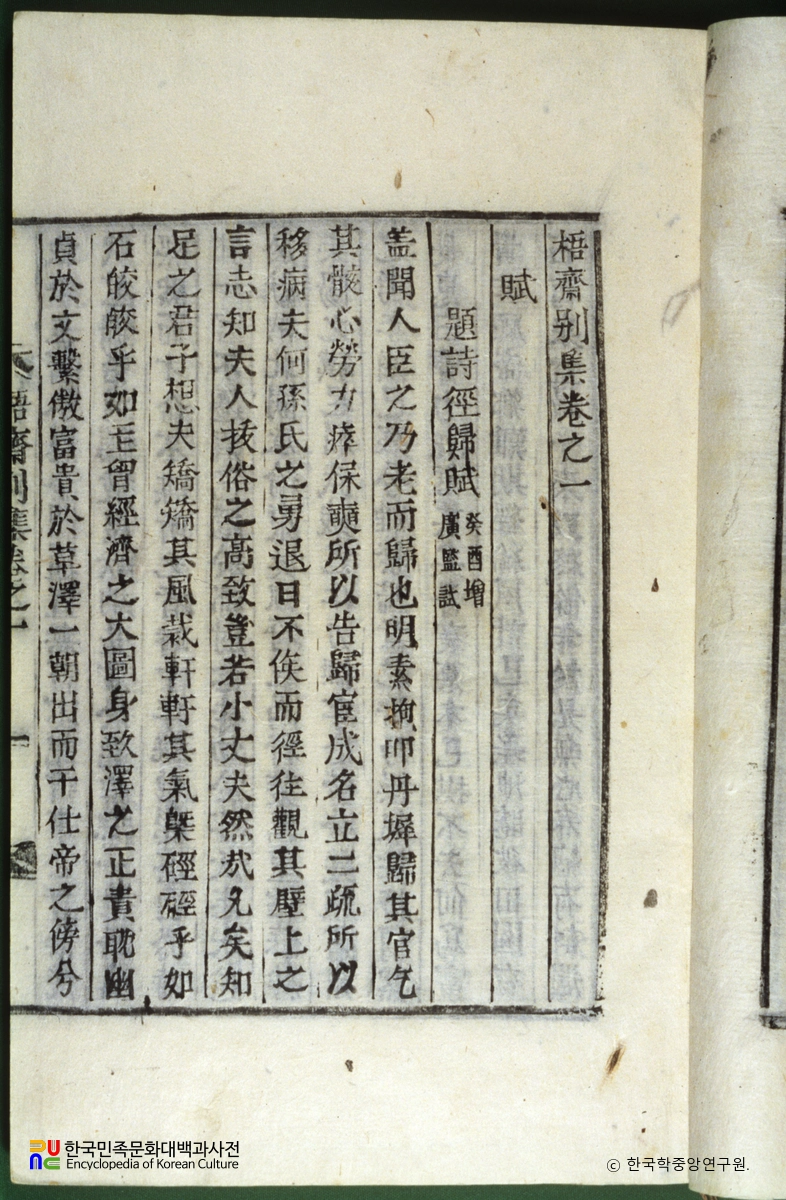 梧齋别集卷之一
賦
題詩徑歸賦 癸酉增廣監試
盖聞人臣之乃老而歸也明素抱叩丹墀歸其官乞
其骸心勞力瘁保奭所以告歸宦成名立二疏所以
移病夫何孫氏之勇退日不俟而徑往觀其壁上之
言志知夫人拔俗之高致豈若小丈夫然哉凡矣知
足之君子想夫矯矯其風裁軒軒其氣槩硜硜乎如
石皎皎乎如玉曾經濟之大圖身致澤之正責耽幽
貞於文繫傲富貴於草澤一朝出而干仕帝之傍兮
梧齋别集卷之一
一
한국민족문화대백과사전
Encyclopedia of Korean Culture
© 한국학중앙연구원.